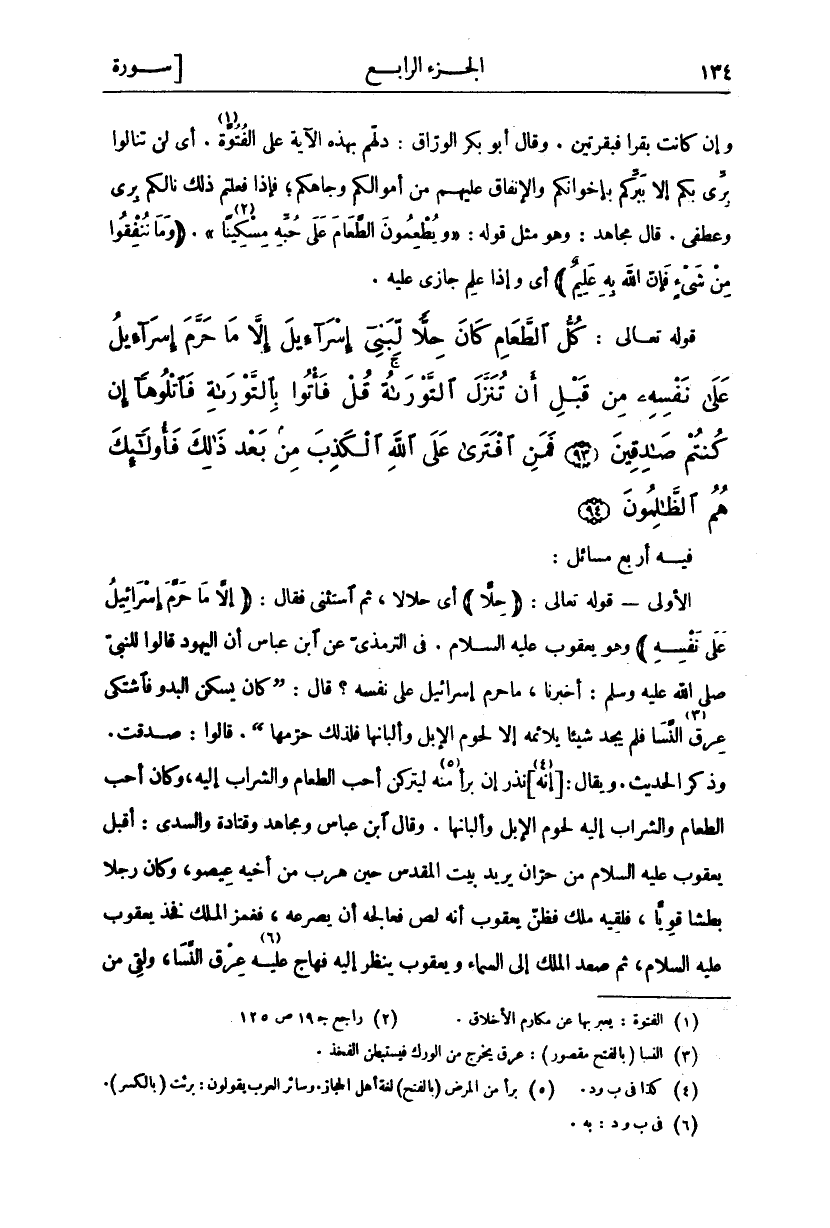 ١٣٤ الجـــزء الرابـــع [ ســـورة
وإن كانت بقرا فبقرتين . وقال أبو بكر الورّاق : دلّهم بهذه الآية على الفُتُوّة (١) . أى لن تنالوا
بِرِّى بكم إلا بِبَرِّكم بإخوانكم والإنفاق عليهـم من أموالكم وجاهكم ؛ فإذا فعلتم ذلك نالكم بِرى
وعطفى . قال مجاهد : وهو مثل قوله : «وَيُطْعِمُونَ الطَّعَامَ عَلَى حُبِّهِ مِسْكِينًا (٢) » . ﴿ وَمَا تُنْفِقُوا
مِنْ شَىْءٍ فَإِنّ اللّهَ بِهِ عَلِيمٌ ﴾ أى وإذا علم جازى عليه .
قوله تعـالى : كُلُّ ٱلطَّعَامِ كَانَ حِلًّا لِّبَنِىٓ إِسْرَٰٓءِيلَ إِلَّا مَا حَرَّمَ إِسْرَٰٓءِيلُ
عَلَىٰ نَفْسِهِۦ مِن قَبْلِ أَن تُنَزَّلَ ٱلتَّوْرَىٰةُ ۗ قُلْ فَأْتُوا بِٱلتَّوْرَىٰةِ فَٱتْلُوهَآ إِن
كُنتُمْ صَـٰدِقِينَ ﴿٩٣﴾ فَمَنِ ٱفْتَرَىٰ عَلَى ٱللَّهِ ٱلْكَذِبَ مِنۢ بَعْدِ ذَٰلِكَ فَأُولَـٰٓئِكَ
هُمُ ٱلظَّـٰلِمُونَ ﴿٩٤﴾
فيـه أربع مسائل :
الأولى — قوله تعالى : ﴿ حِلًّا ﴾ أى حلالا ، ثم ٱستثنى فقال : ﴿ إلَّا مَا حَرَّمَ إِسْرَائِيلُ
عَلَى نَفْسِـهِ ﴾ وهو يعقوب عليه السـلام . فى الترمذىّ عن ٱبن عباس أن اليهود قالوا للنبىّ
صلى الله عليه وسلم : أخبرنا ، ماحرم إسرائيل على نفسه ؟ قال : ”كان يسكن البدو فٱشتكى
عِرق النَّسَا (٣) فلم يجد شيئا يلائمه إلا لحوم الإبل وألبانها فلذلك حرّمها“ . قالوا : صـدقت .
وذكر الحديث . ويقال : [إنّه] (٤) نذر إن برأ (٥) منه ليتركن أحب الطعام والشراب إليه ، وكان أحب
الطعام والشراب إليه لحوم الإبل وألبانها . وقال ٱبن عباس ومجاهد وقتادة والسدى : أقبل
يعقوب عليه السلام من حرّان يريد بيت المقدس حين هرب من أخيه عِيصو ، وكان رجلا
بطشا قويًّا ، فلقيه ملك فظنّ يعقوب أنه لص فعالجه أن يصرعه ، فغمز الملك فخذ يعقوب
عليه السلام ، ثم صعد الملك إلى السماء ويعقوب ينظر إليه فهاج عليـه (٦) عِرْق النَّسَا ، ولقِى من
(١) الفتوة : يعبر بها عن مكارم الأخلاق . (٢) راجع جـ ١٩ ص ١٢٥
(٣) النسا (بالفتح مقصور) : عرق يخرج من الورك فيستبطن الفخذ .
(٤) كذا فى ب ود . (٥) برأ من المرض (بالفتح) لغة أهل الحجاز . وسائر العرب يقولون : برئت (بالكسر) .
(٦) فى ب ود : به .